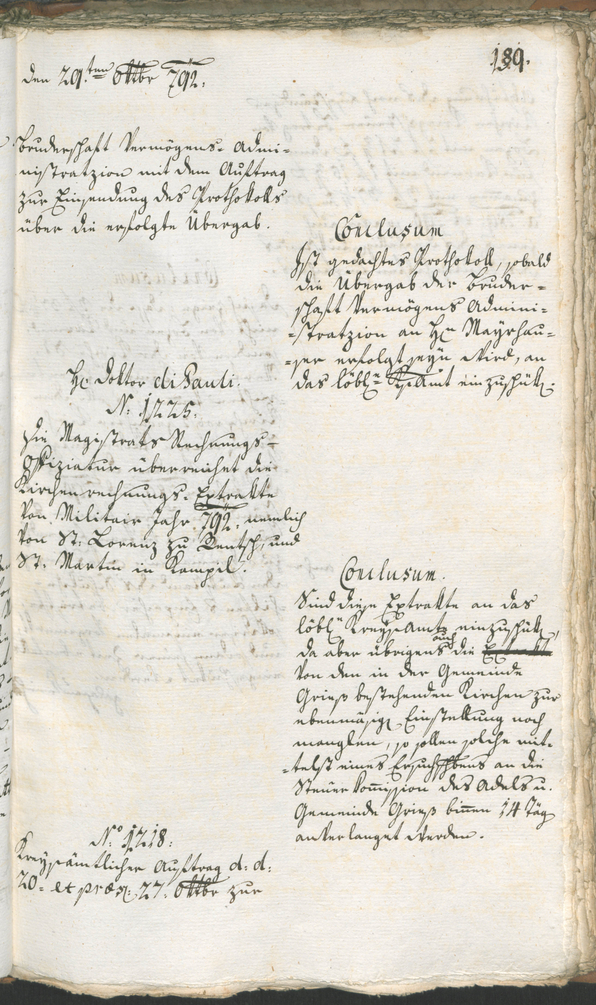 189.
den 29.ten 8ttbr 792.
Bruderschaft Vermögens-Admi-
nistratzion mit dem Auftrag
zur Einsendung des Prothokolls
über die erfolgte Übergab.
Conclusum
Ist gedachtes Prothokoll, sobald
die Übergab der Bruder-
schaft Vermögens Admini-
stratzion an Hn Mayrhau-
ser erfolgt seyn wird, an
das löbl. KreisAmt einzuschük.
H: Doktor di Pauli.
N. 1225.
Die Magistrats Rechnungs-
Offiziatur überreichet die
Kirchenrechnungs-Extrakte
von Militair Jahr 792, nemlich
von St: Lorenz zu Rentsch, und
St: Martin in Kampil.
Conclusum.
Sind diese Extrakte an das
löbl. KreysAmt einzuschük,
da aber übrigens auch die Extrakte
von den in der Gemeinde
Grieß bestehenden Kirchen zur
ebenmäsig Einstellung noch
manglen, so sollen solche mit-
telst eines Ersuchschbens an die
Steuerkommission des Adels u.
Gemeinde Grieß binnen 14 Täg
anverlanget werden.
N.o 1218.
Kreysämtlicher Auftrag d: d:
20. et præs: 27. 8ttbr zur